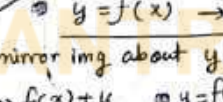 y = f(x) →
mirror img about y
f(x)+k y=f